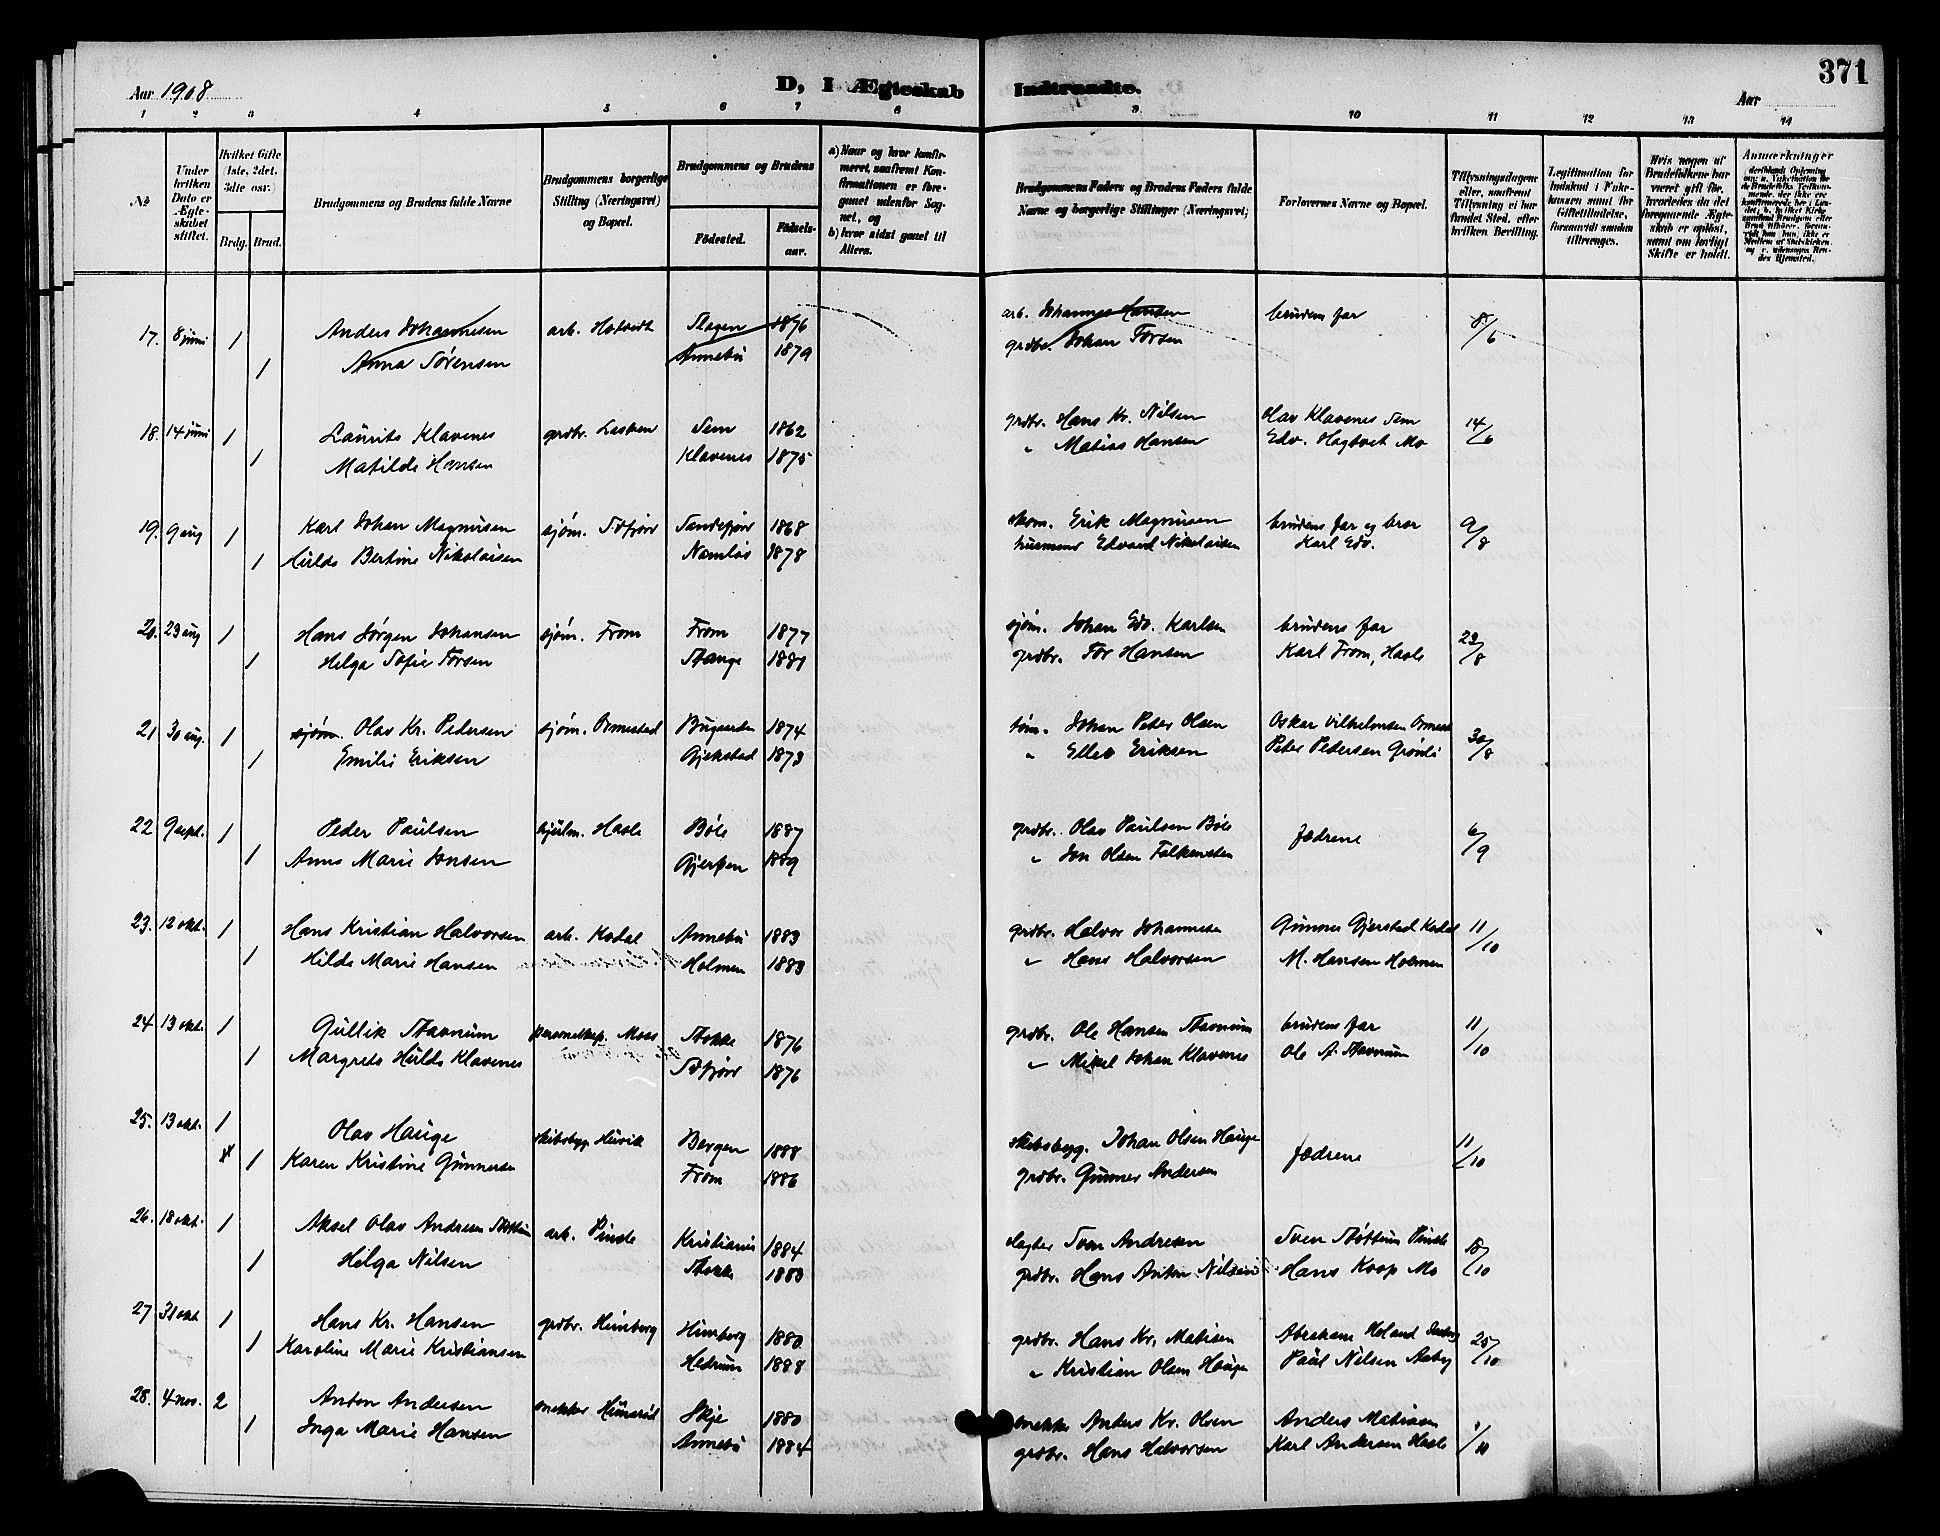 371
Aar 1908
D, I Ægteskab Indtraadte.
Aar
1 2 3 4 5 6 7 8 9 10 11 12 13 14
№
Under hvilken Dato er Ægteskabet stiftet.
Hvilket Gifte (1ste, 2det, 3die osv.)
Brdg. Brud.
Brudgommens og Brudens fulde Navne
Brudgommens borgerlige Stilling (Næringsvei) og Bopæl.
Brudgommens og Brudens
Fødested.
Fødselsaar.
a) Naar og hvor konfirmeret, saafremt Konfirmationen er foregaaet udenfor Sognet, og
b) hvor sidst gaaet til Alters.
Brudgommens Faders og Brudens Faders fulde Navne og borgerlige Stillinger (Næringsvei)
Forlovernes Navne og Bopæl.
Tillysningsdagene eller, saafremt Tillysning ei har fundet Sted, efter hvilken Bevilling.
Legitimation for Indskud i Enkekassen samt for Giftetilladelse, forsaavidt saadan tiltrænges.
Hvis nogen af Brudefolkene har været gift før, hvorledes da det foregaaende Ægteskab er opløst, samt om lovligt Skifte er holdt.
Anmærkninger
17. 8 juni 1 Anders Johannesen arb. Hotvedt Slagen 1876 arb. Johannes Hansen brudens far 8/6
1 Anna Sørensen Annebu 1879 grdbr. Johan Torsen
18. 14 juni 1 Laurits Klavenes grdbr. Lasken Sem 1862 grdbr. Hans Kr. Nilsen Olav Klavenes Sem 14/6
1 Matilde Hansen Klavenes 1875 " Matias Hansen Edv. Hagtvet Mo
19. 9 aug 1 Karl Johan Magnusen sjøm. Sdfjord Sandefjord 1868 skom. Erik Magnusen brudens far og bror 9/8
1 Hulda Bertine Nikolaisen Namløs 1878 husmand Edvard Nikolaisen Karl Edv.
20. 23 aug 1 Hans Jørgen Johansen sjøm. From From 1877 sjøm. Johan Edv. Karlsen brudens far 23/8
1 Helga Sofie Torsen Stange 1881 grdbr. Tor Hansen Karl From, Hasle
21 30 aug. 1 sjøm. Olav Kr. Pedersen sjøm. Ormestad Bugaarden 1874 tøm. Johan Peter Olsen Oskar Vilhelmsen Ormest 30/8
1 Emilie Eriksen Gjekstad 1873 " Ellev Eriksen Peder Pedersen Grønli
22 9 sept. 1 Peder Paulsen hjulm. Hasle Bøle 1887 grdbr. Olav Paulsen Bøle fædrene 6/9
1 Anna Marie Jonsen Gjerpen 1889 " Jon Olsen Falkensten
23. 12 okt. 1 Hans Kristian Halvorsen arb. Kodal Annebu 1883 grdbr. Halvor Johannesen Gunnar Gjerstad Kodal 11/10
1 Hilda Marie Hansen Holmen 1883 " Hans Halvorsen M. Hansen Holmen
24 13 okt. 1 Gullik Stavnum Moss Stokke 1876 grdbr. Ole Hansen Stavnum brudens far 11/10
1 Margrete Hulda Klavenes Sdfjord 1876 " Mikel Johan Klavenes Ole A. Stavnum
25. 13 okt. 1 Olav Hauge skibsbyg. Huvik Bergen 1888 skibsbygg. Johan Olsen Hauge fædrene 11/10
1 Karen Kristine Gunnersen From 1886 grdbr. Gunner Andersen
26. 18 okt. 1 Aksel Olav Andresen Støttum arb. Pindsle Kristiania 1884 slagter Sven Andresen Sven Støttum Pindsle 18/10
1 Helga Nilsen Stokke 1883 grdbr. Hans Anton Nilsen Hans Koop Mo
27 31 okt 1 Hans Kr. Hansen grdbr. Himberg Himberg 1880 grdbr. Hans Kr. Matisen Abraham Holand 25/10
1 Karoline Marie Kristiansen Hedrum 1888 " Kristian Olsen Hauge Paul Nilsen Aaby
28. 4 nov. 2 Anton Andersen snekker Hunsrød Skje 1880 snekke Anders Kr. Olsen Anders Matisen 1/11
1 Inga Marie Hansen Annebu 1884 grdbr. Hans Halvorsen Karl Andersen Hasle